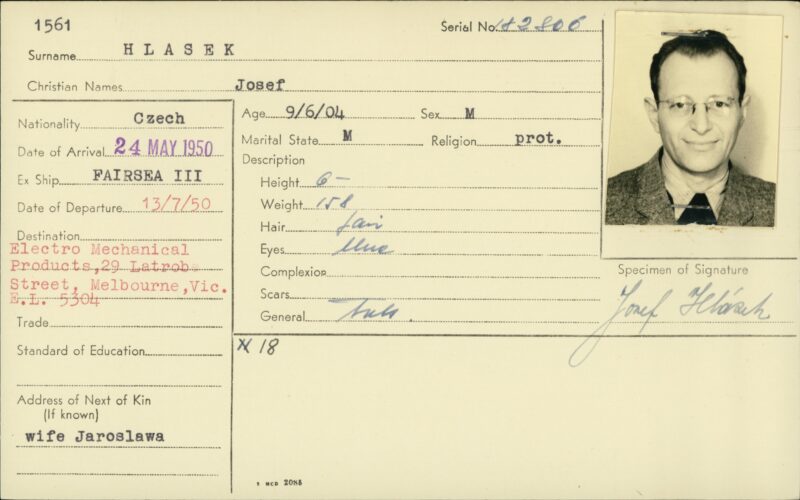 1561
Serial No. 182806
Surname HLASEK
Christian Names Josef
Nationality Czech
Date of Arrival 24 MAY 1950
Ex Ship FAIRSEA III
Date of Departure 13/7/50
Destination
Electro Mechanical
Products,29 Latrobe
Street, Melbourne,Vic.
E.L. 5304
Trade
Standard of Education
Address of Next of Kin
(If known)
wife Jaroslawa
Age 9/6/04 Sex M
Marital State M Religion prot.
Description
Height 6-
Weight 158
Hair fair
Eyes blue
Complexion
Scars
General
18
Specimen of Signature
Josef Hlásek
1 MCD 2085